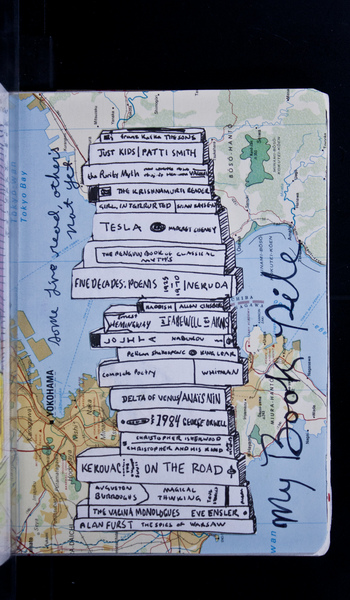 Franz Kafka THE SONS
JUST KIDS | PATTI SMITH
the Purity Myth
THE KRISHNAMURTI READER
GIRL, INTERRUPTED
TESLA MARGARET CHENEY
THE PENGUIN BOOK OF CLASSICAL
MYTHS
FIVE DECADES: POEMS 1925 TO 1970 NERUDA
KADDISH ALLEN GINSBERG
ERNEST
HEMINGWAY A FAREWELL TO ARMS
NABOKOV
Pelican Shakespeare KING LEAR
Complete Poetry WHITMAN
DELTA OF VENUS/ANAÏS NIN
1984 GEORGE ORWELL
CHRISTOPHER ISHERWOOD
CHRISTOPHER AND HIS KIND
KEROUAC ON THE ROAD
AUGUSTEN
BURROUGHS
MAGICAL
THINKING
THE VAGINA MONOLOGUES EVE ENSLER
ALAN FURST THE SPIES OF WARSAW
Some I've read, others
not yet.
My Book Pile
Tokyo Bay
YOKOHAMA
BOSO-HANTO
MIURA-HANTO